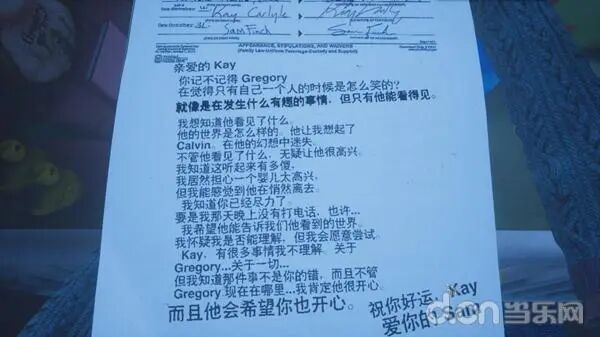 Kay Carlyle
Sam Finch
Sam Finch
APPEARANCE, STIPULATIONS, AND WAIVERS
(Family Law-Uniform Parentage-Custody and Support)
亲爱的 Kay
你记不记得 Gregory
在觉得只有自己一个人的时候是怎么笑的?
就像是在发生什么有趣的事情，但只有他能看得见。
我想知道他看见了什么。
他的世界是怎么样的。他让我想起了
Calvin。在他的幻想中迷失。
不管他看见了什么，无疑让他很高兴。
我知道这听起来有多傻，
我居然担心一个婴儿太高兴，
但我能感觉到他在悄然离去。
我知道你已经尽力了。
要是我那天晚上没有打电话，也许...
我希望他能告诉我们他看到的世界。
我怀疑我是否能理解，但我会愿意尝试。
Kay，有很多事情我不理解。关于
Gregory...关于一切...
但我知道那件事不是你的错，而且不管
Gregory 现在在哪里...我肯定他很开心。
而且他会希望你也开心。
祝你好运，Kay
爱你的 Sam
d.cn当乐网